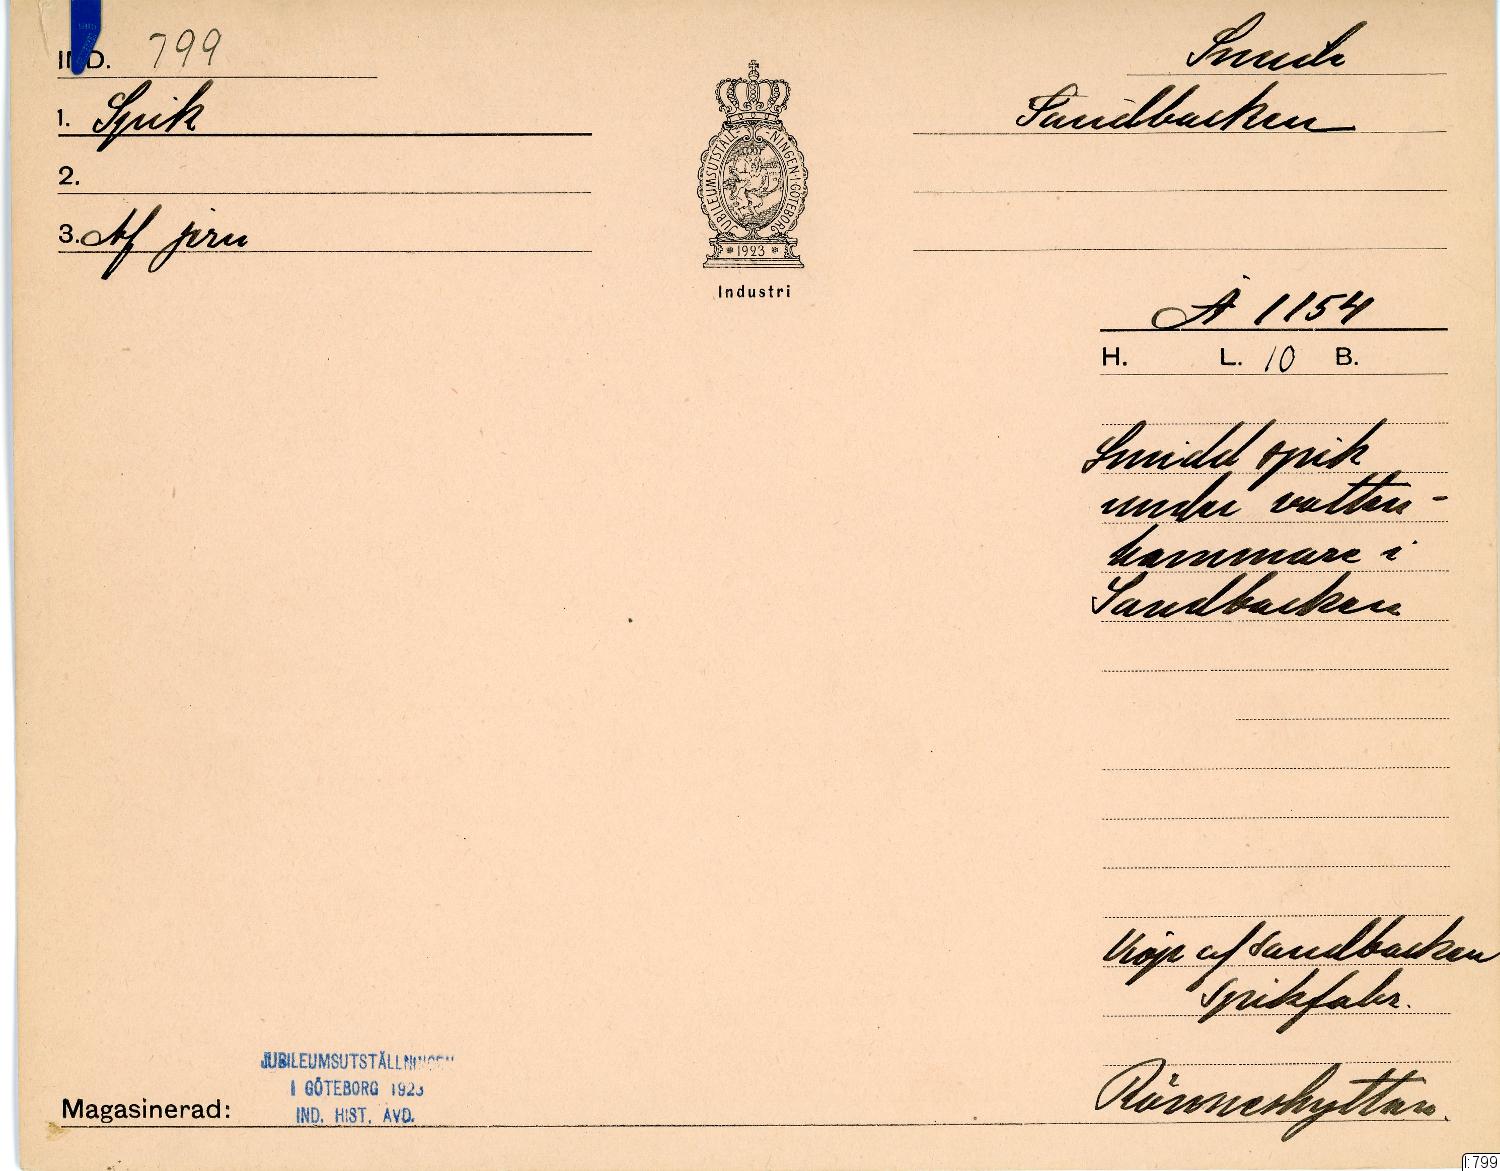 IND. 799
1. Spik
2.
3. Af järn
JUBILEUMSUTSTÄLLNINGEN I GÖTEBORG
* 1923 *
Industri
Smide
Sandbacken
Å 1154
H. L. 10 B.
Smidd spik
under vatten-
hammare i
Sandbacken
Köp af Sandbacken
Spikfabr.
Rönneshyttan.
JUBILEUMSUTSTÄLLNINGEN
I GÖTEBORG 1923
IND. HIST. AVD.
Magasinerad:
I:799